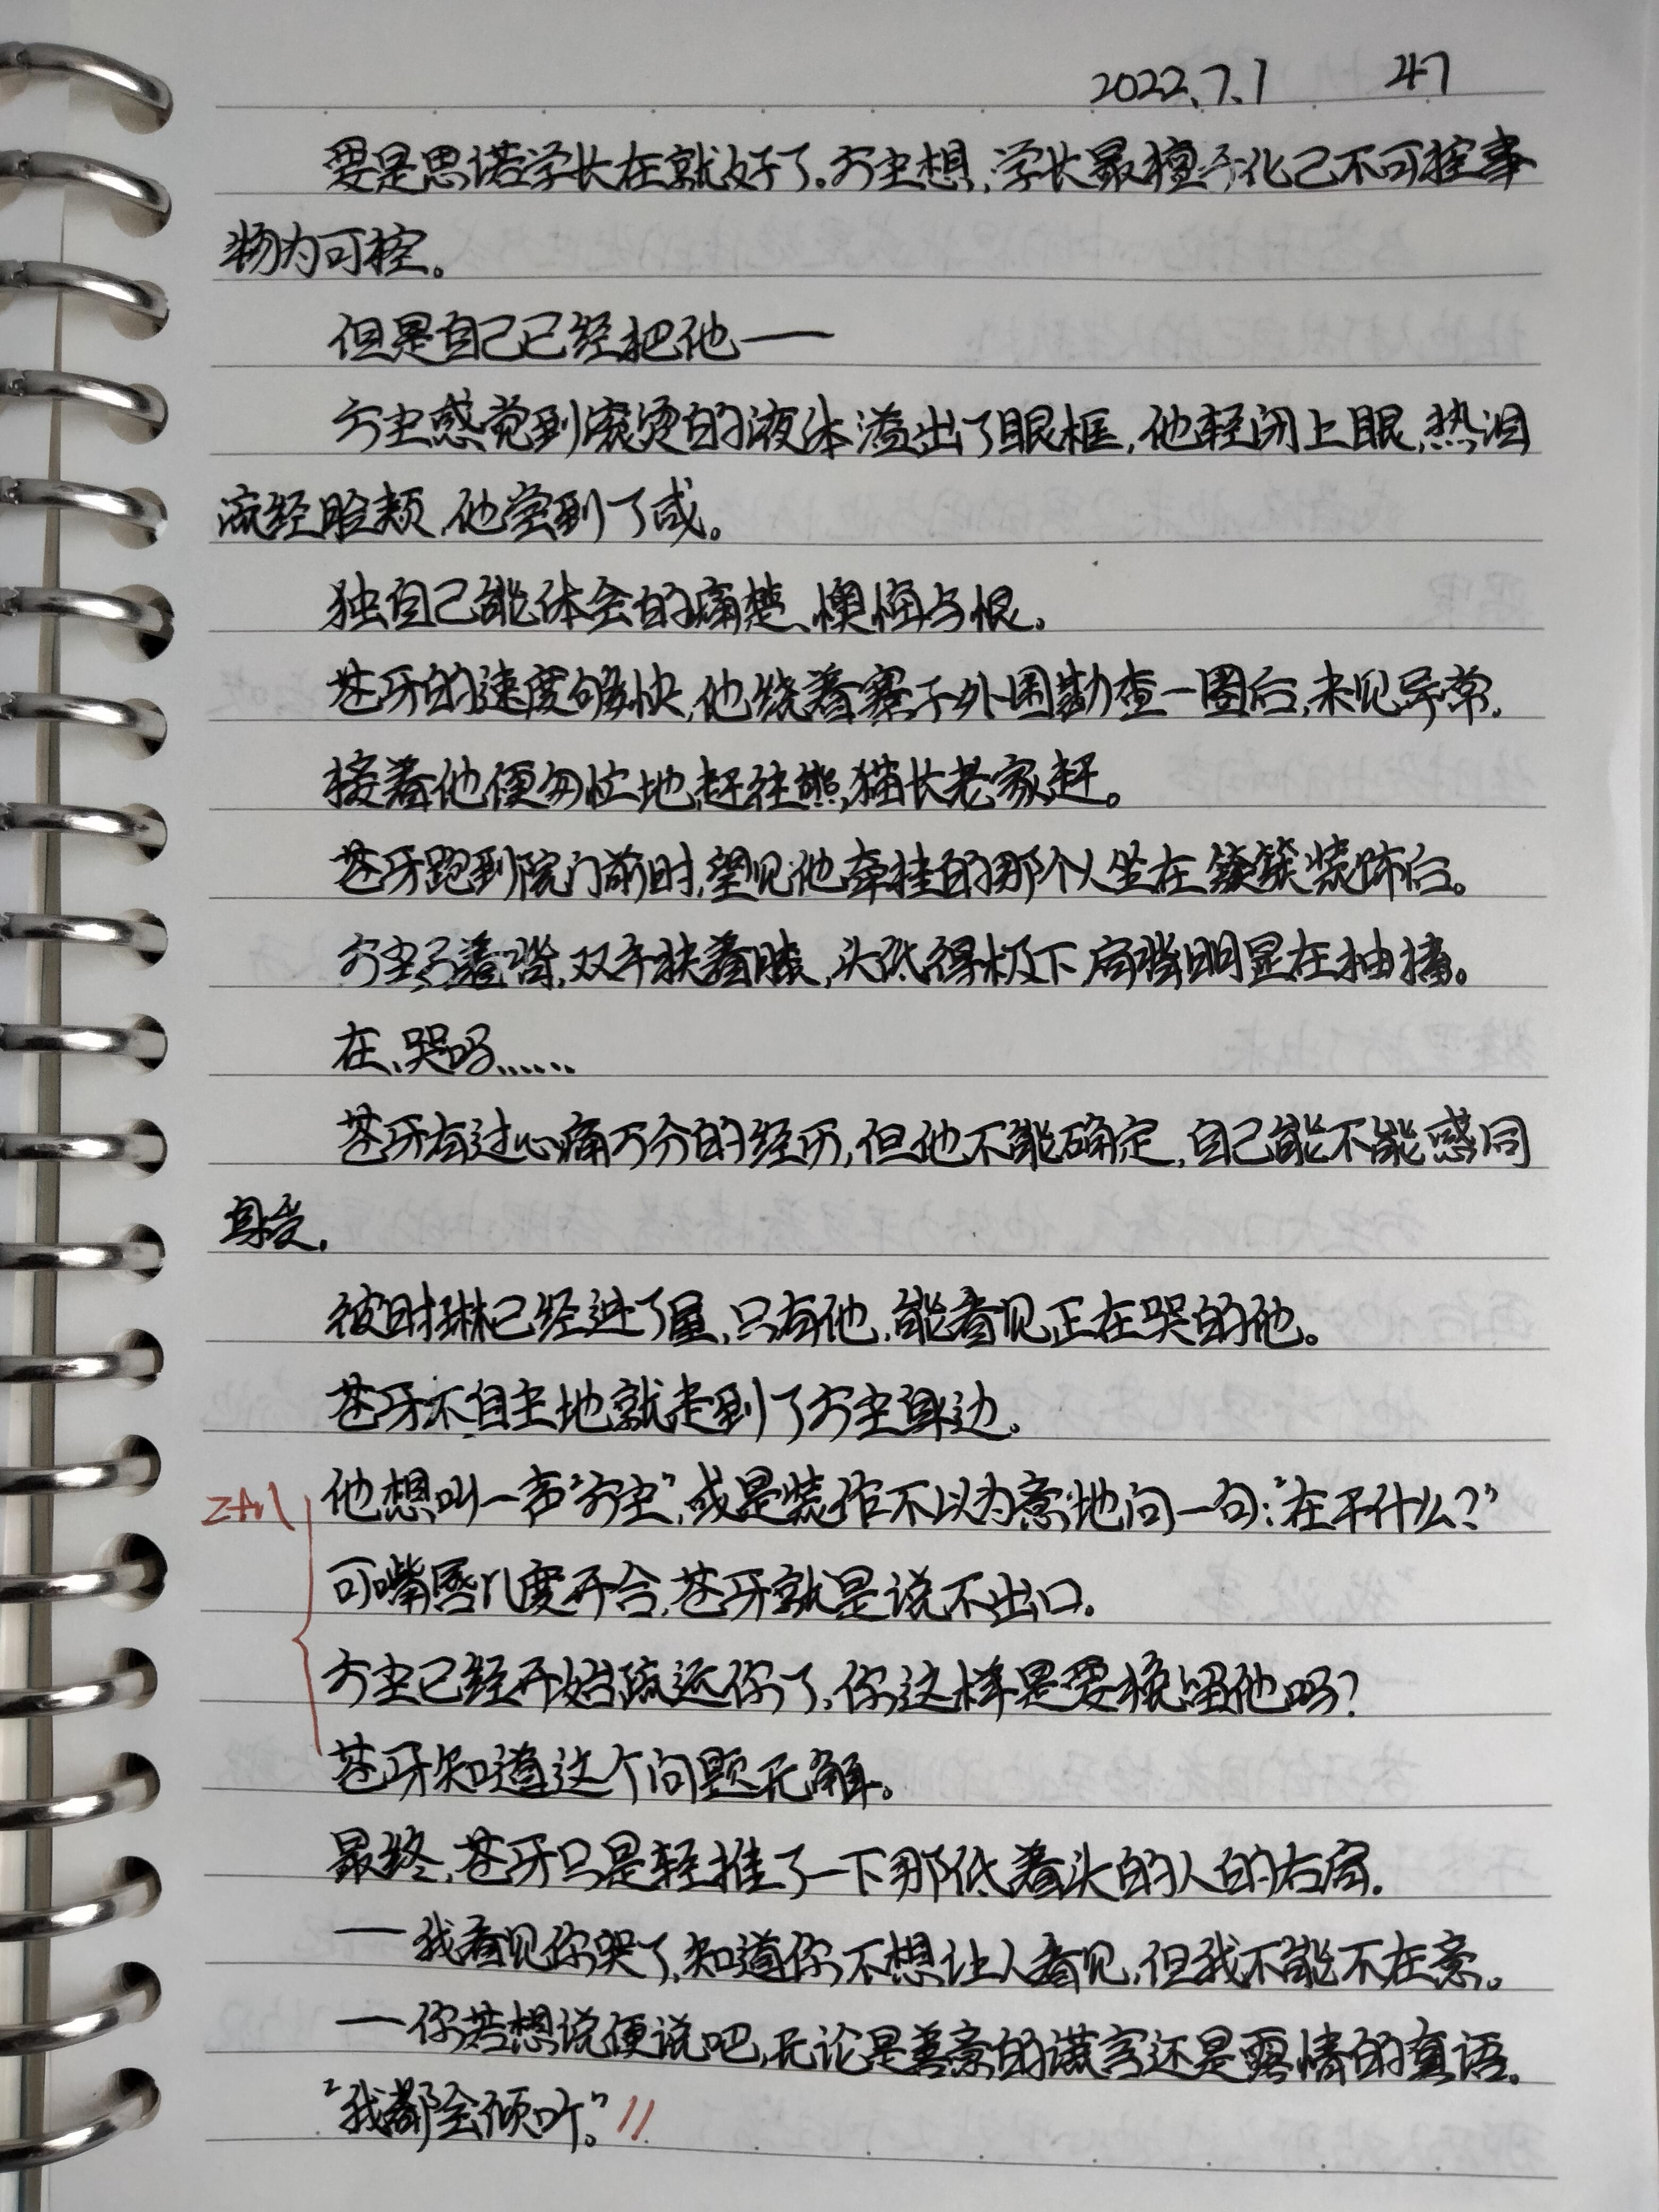 2022.7.1 47
要是思诺学长在就好了。方尘想,学长最擅于化己不可控事
物为可控。
但是自己已经把他——
方尘感觉到滚烫的液体溢出了眼框,他轻闭上眼,热泪
流经脸颊,他尝到了咸。
独自己能体会的痛楚、懊悔与恨。
苍牙的速度够快,他绕着寨子外围勘查一圈后,未见异常。
接着他便匆忙地赶往熊猫长老家赶。
苍牙跑到院门前时,望见他牵挂的那个人坐在簇簇装饰后。
方尘弓着背,双手扶着膝,头低得极下,肩膀明显在抽搐。
在、哭吗……
苍牙有过心痛万分的经历,但他不能确定,自己能不能感同
身受。
彼时琳已经进了屋,只有他,能看见正在哭的他。
苍牙不自主地就走到了方尘身边。
他想叫一声“方尘”,或是装作不以为意地问一句:“在干什么?”
可嘴唇几度开合,苍牙就是说不出口。
方尘已经开始疏远你了,你这样是要挽留他吗?
苍牙知道这个问题无解。
最终,苍牙只是轻推了一下那低着头的人的右肩。
—我看见你哭了,知道你不想让人看见,但我不能不在意。
—你若想说便说吧,无论是善意的谎言还是露情的真语。
“我都会倾听。”